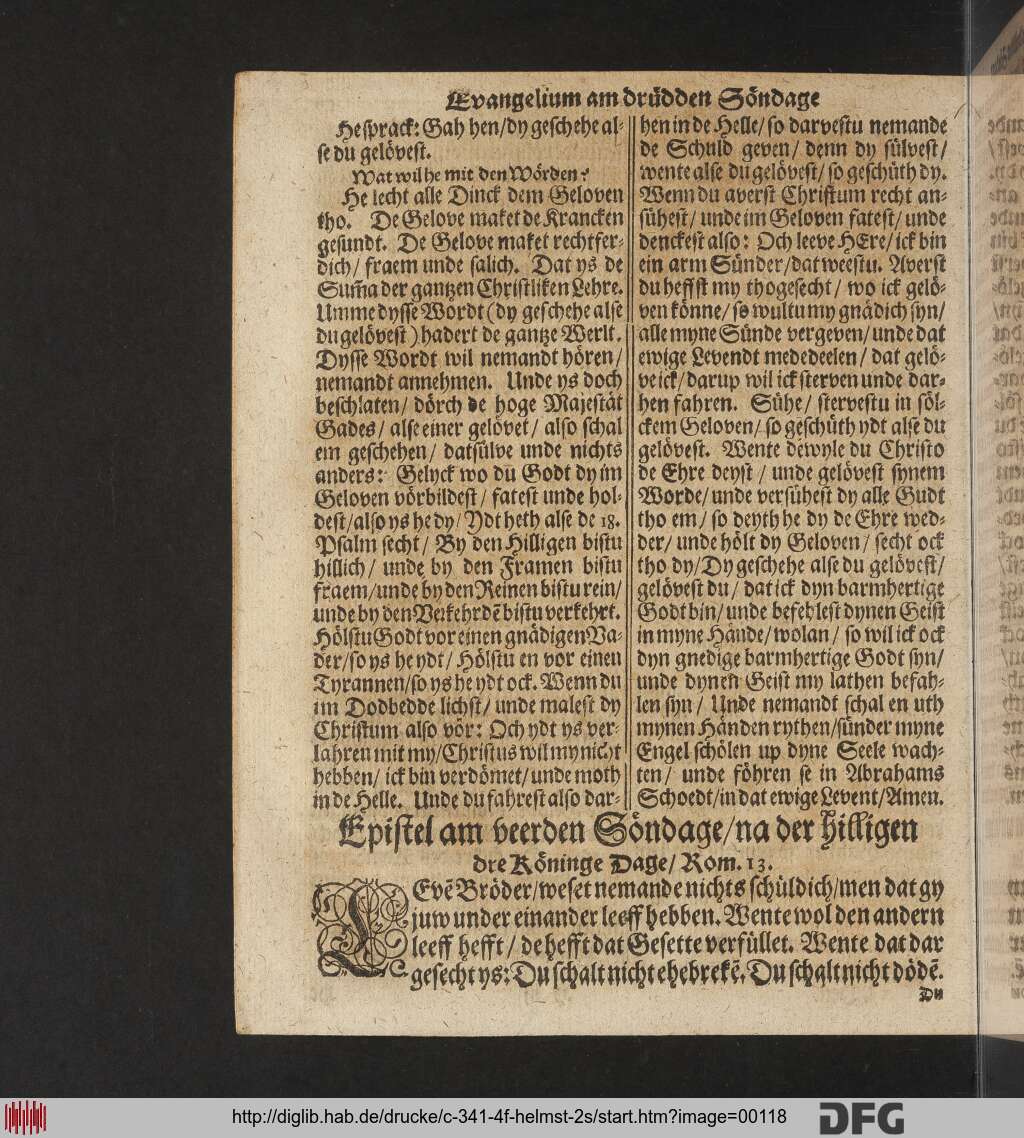 Evangelium am drüdden Söndage
He sprack: Gah hen/ dy geschehe al-
se du gelövest.
Wat wil he mit den Wörden?
He lecht alle Dinck dem Geloven
tho. De Gelove maket de Krancken
gesundt. De Gelove maket rechtfer-
dich/ fraem unde salich. Dat ys de
Sum̃a der gantzen Christliken Lehre.
Umme dysse Wordt (dy geschehe alse
du gelövest) hadert de gantze Werlt.
Dysse Wordt wil nemandt hören/
nemandt annehmen. Unde ys doch
beschlaten/ dörch de hoge Majestät
Gades/ alse einer gelövet/ also schal
em geschehen/ datsülve unde nichts
anders: Gelyck wo du Godt dy im
Geloven vörbildest/ fatest unde hol-
dest/ also ys he dy/ Ydt heth alse de 18.
Psalm secht/ By den Hilligen bistu
hillich/ unde by den Framen bistu
fraem/ unde by den Reinen bistu rein/
unde by den Verkehrdē bistu verkehrt.
Hölstu Godt vor einen gnädigen Va-
der/ so ys he ydt/ Hölstu en vor einen
Tyrannen/ so ys he ydt ock. Wenn du
im Dodbedde lichst/ unde malest dy
Christum also vör: Och ydt ys ver-
lahren mit my/ Christus wil my nicht
hebben/ ick bin verdömet/ unde moth
in de Helle. Unde du fahrest also dar-
hen in de Helle/ so darvestu nemande
de Schuld geven/ denn dy sülvest/
wente alse du gelövest/ so geschüth dy.
Wenn du averst Christum recht an-
sühest/ unde im Geloven fatest/ unde
denckest also: Och leeve HEre/ ick bin
ein arm Sünder/ dat weestu. Averst
du heffst my thogesecht/ wo ick gelö-
ven könne/ so wultu my gnädich syn/
alle myne Sünde vergeven/ unde dat
ewige Levendt mededeelen/ dat gelö-
ve ick/ darup wil ick sterven unde dar-
hen fahren. Sühe/ stervestu in söl-
ckem Geloven/ so geschüth ydt alse du
gelövest. Wente dewyle du Christo
de Ehre deyst/ unde gelövest synem
Worde/ unde versühest dy alle Gudt
tho em/ so deyth he dy de Ehre wed-
der/ unde hölt dy Geloven/ secht ock
tho dy/ Dy geschehe alse du gelövest/
gelövest du/ dat ick dyn barmhertige
Godt bin/ unde befehlest dynen Geist
in myne Hände/ wolan/ so wil ick ock
dyn gnedige barmhertige Godt syn/
unde dynen Geist my lathen befah-
len syn/ Unde nemandt schal en uth
mynen Händen rythen/ sünder myne
Engel schölen up dyne Seele wach-
ten/ unde föhren se in Abrahams
Schoedt/ in dat ewige Levent/ Amen.
Epistel am veerden Söndage/ na der hilligen
dre Köninge Dage/ Rom. 13.
LEvē Bröder/ weset nemande nichts schüldich/ men dat gy
juw under einander leeff hebben. Wente wol den andern
leeff hefft/ de hefft dat Gesette verfüllet. Wente dat dar
gesecht ys: Du schalt nicht ehebrekē. Du schalt nicht dödē.
Du
http://diglib.hab.de/drucke/c-341-4f-helmst-2s/start.htm?image=00118
DFG